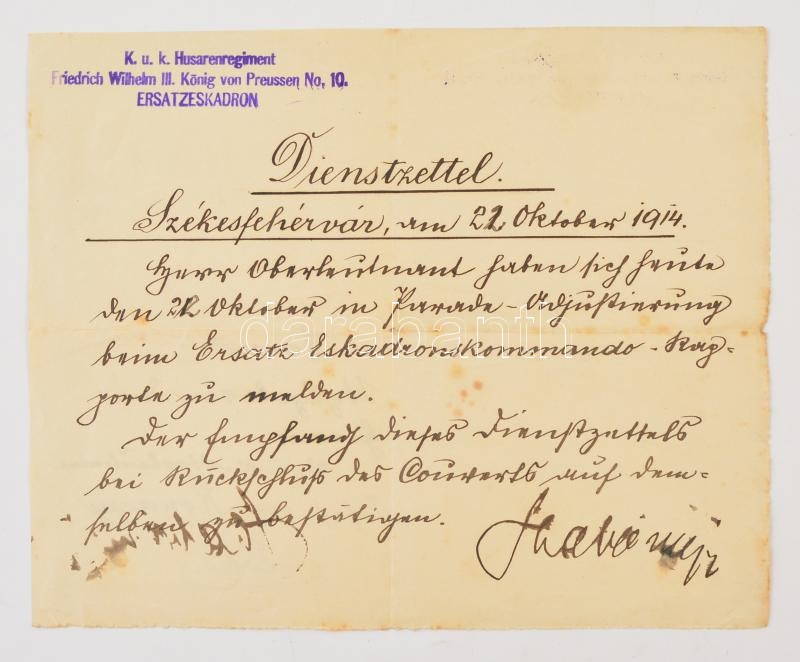 K. u. k. Husarenregiment
Friedrich Wilhelm III. König von Preussen No. 10.
ERSATZESKADRON
Dienstzettel.
Székesfehérvár, am 22 Oktober 1914.
Herr Oberleutnant haben sich heute
den 22 Oktober in Parade-Adjustierung
beim Ersatz Eskadronskommando-Rap-
porte zu melden.
Der Empfang dieses Dienstzettels
bei Rückschluß des Couverts auf dem-
selben zu bestätigen.
darabanth